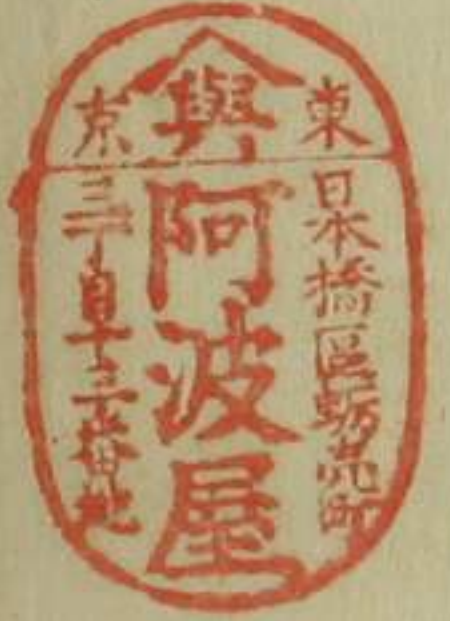 東京
與
日本橋區蛎売町
阿波屋
三丁目十三番地